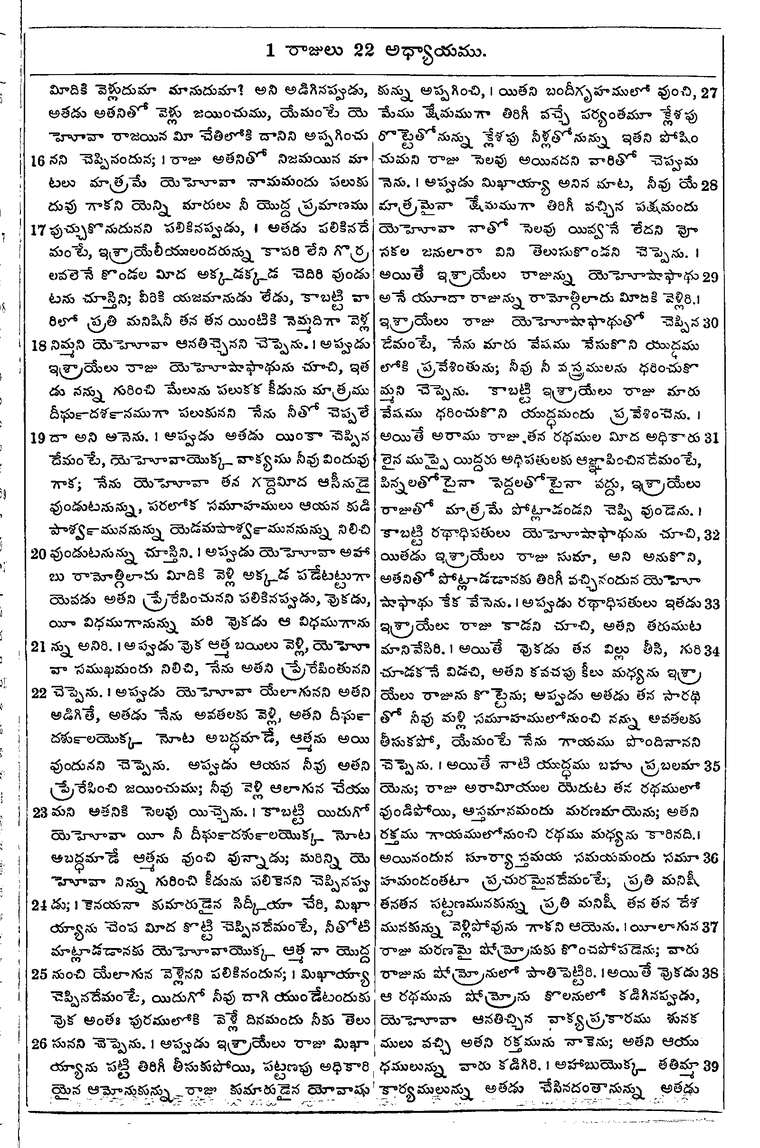 1 రాజులు 22 అధ్యాయము.
మీదికి వెళ్లుదుమా మానుదుమా? అని అడిగినప్పుడు,
అతడు అతనితో వెళ్లు జయించుము, యేమంటే యె
హోవా రాజయిన మీ చేతిలోకి దానిని అప్పగించు
16 నని చెప్పినందున; । రాజు అతనితో నిజమయిన మా
టలు మాత్రమే యెహోవా నామమందు పలుకు
దువు గాకని యెన్ని మారులు నీ యొద్ద ప్రమాణము
17 పుచ్చుకొనుదునని పలికినప్పుడు, । అతడు పలికినదే
మంటే, ఇశ్రాయేలీయులందరున్ను కాపరి లేని గొర్ర
లవలెనే కొండల మీద అక్కడక్కడ చెదిరి వుండు
టను చూస్తిని; వీరికి యజమానుడు లేడు, కాబట్టి వా
రిలో ప్రతి మనిషినీ తన తన యింటికి నెమ్మదిగా వెళ్ల
18 నిమ్మని యెహోవా ఆనతిచ్చెనని చెప్పెను. । అప్పుడు
ఇశ్రాయేలు రాజు యెహోషాఫాథును చూచి, ఇత
డు నన్ను గురించి మేలును పలుకక కీడును మాత్రము
దీర్ఘదర్శనముగా పలుకునని నేను నీతో చెప్పలే
19 దా అని అనెను. । అప్పుడు అతడు యింకా చెప్పిన
దేమంటే, యెహోవాయొక్క వాక్యము నీవు విందువు
గాక; నేను యెహోవా తన గద్దెమీద ఆసీనుడై
వుండుటనున్ను, పరలోక సమూహములు ఆయన కుడి
పార్శ్వముననున్ను యెడమపార్శ్వముననున్ను నిలిచి
20 వుండుటనున్ను చూస్తిని. । అప్పుడు యెహోవా అహా
బు రామోత్గిలాదు మీదికి వెళ్లి అక్కడ పడేటట్టుగా
యెవడు అతని ప్రేరేపించునని పలికినప్పుడు, వొకడు,
యీ విధముగానున్ను మరి వొకడు ఆ విధముగాను
21 న్ను అనిరి. । అప్పుడు వొక ఆత్మ బయిలు వెళ్లి, యెహో
వా సముఖమందు నిలిచి, నేను అతని ప్రేరేపింతునని
22 చెప్పెను. । అప్పుడు యెహోవా యేలాగునని అతని
అడిగితే, అతడు నేను అవతలకు వెళ్లి, అతని దీర్ఘ
దర్శులయొక్క నోట అబద్ధమాడే, ఆత్మను అయి
వుందునని చెప్పెను. అప్పుడు ఆయన నీవు అతని
ప్రేరేపించి జయించుము; నీవు వెళ్లి ఆలాగున చేయు
23 మని అతనికి సెలవు యిచ్చెను. । కాబట్టి యిదుగో
యెహోవా యీ నీ దీర్ఘదర్శులయొక్క నోట
అబద్ధమాడే ఆత్మను వుంచి వున్నాడు; మరిన్ని యె
హోవా నిన్ను గురించి కీడును పలికెనని చెప్పినప్పు
24 డు; । కెనయనా కుమారుడైన సిద్కీయా చేరి, మిఖా
య్యాను చెంప మీద కొట్టి చెప్పినదేమంటే, నీతోటి
మాట్లాడడానకు యెహోవాయొక్క ఆత్మ నా యొద్ద
25 నుంచి యేలాగున వెళ్లెనని పలికినందున; । మిఖాయ్యా
చెప్పినదేమంటే, యిదుగో నీవు దాగి యుండేటందుకు
వొక అంతః పురములోకి వెళ్లే దినమందు నీకు తెలు
26 సునని చెప్పెను. । అప్పుడు ఇశ్రాయేలు రాజు మిఖా
య్యాను పట్టి తిరిగీ తీసుకుపోయి, పట్టణపు అధికారి
యైన ఆమోనుకున్ను రాజు కుమారుడైన యోవాషు
కున్ను అప్పగించి, । యితని బందీగృహములో వుంచి, 27
మేము క్షేమముగా తిరిగీ వచ్చే పర్యంతమూ క్లేశపు
రొట్టెతోనున్ను క్లేశపు నీళ్లతోనున్ను ఇతని పోషిం
చుమని రాజు సెలవు అయినదని వారితో చెప్పుమ
నెను. । అప్పుడు మిఖాయ్యా అనిన మాట, నీవు యే 28
మాత్రమైనా క్షేమముగా తిరిగీ వచ్చిన పక్షమందు
యెహోవా నాతో సెలవు యివ్వనే లేదని వో
సకల జనులారా విని తెలుసుకొండని చెప్పెను. ।
అయితే ఇశ్రాయేలు రాజున్ను యెహోషాఫాథు 29
అనే యూదా రాజున్ను రామోత్గిలాదు మీదికి వెళ్లిరి.।
ఇశ్రాయేలు రాజు యెహోషాఫాథుతో చెప్పిన 30
దేమంటే, నేను మారు వేషము వేసుకొని యుద్ధము
లోకి ప్రవేశింతును; నీవు నీ వస్త్రములను ధరించుకొ
మ్మని చెప్పెను. కాబట్టి ఇశ్రాయేలు రాజు మారు
వేషము ధరించుకొని యుద్ధమందు ప్రవేశించెను. ।
అయితే అరాము రాజు తన రథముల మీద అధికారు 31
లైన ముప్ఫై యిద్దరు అధిపతులకు ఆజ్ఞాపించినదేమంటే,
పిన్నలతోటైనా పెద్దలతోటైనా వద్దు, ఇశ్రాయేలు
రాజుతో మాత్రమే పోట్లాడండని చెప్పి వుండెను. ।
కాబట్టి రథాధిపతులు యెహోషాఫాథును చూచి, 32
యితడు ఇశ్రాయేలు రాజు సుమా, అని అనుకొని,
అతనితో పోట్లాడడానకు తిరిగీ వచ్చినందున యెహో
షాఫాథు కేక వేసెను. । అప్పుడు రథాధిపతులు ఇతడు 33
ఇశ్రాయేలు రాజు కాడని చూచి, అతని తరుముట
మానివేసిరి. । అయితే వొకడు తన విల్లు తీసి, గురి 34
చూడకనే విడచి, అతని కవచపు కీలు మధ్యను ఇశ్రా
యేలు రాజును కొట్టెను; అప్పుడు అతడు తన సారథి
తో నీవు మళ్లి సమూహములోనుంచి నన్ను అవతలకు
తీసుకపో, యేమంటే నేను గాయము పొందినానని
చెప్పెను. । అయితే నాటి యుద్ధము బహు ప్రబలమా 35
యెను; రాజు అరామీయుల యెదుట తన రథములో
వుండిపోయి, అస్తమానమందు మరణమాయెను; అతని
రక్తము గాయములోనుంచి రథము మధ్యను కారినది.।
అయినందున సూర్యాస్తమయ సమయమందు సమూ 36
హమందంతటా ప్రచురమైనదేమంటే; ప్రతి మనిషీ
తనతన పట్టణమునకున్ను ప్రతి మనిషీ తన తన దేశ
మునకున్ను వెళ్లిపోవును గాకని ఆయెను. । యీలాగున 37
రాజు మరణమై షోమ్రోనుకు కొంచపోపడెను; వారు
రాజును షోమ్రోనులో పాతిపెట్టిరి. । అయితే వొకడు 38
ఆ రథమును షోమ్రోను కొలనులో కడిగినప్పుడు,
యెహోవా ఆనతిచ్చిన వాక్యప్రకారము శునక
ములు వచ్చి అతని రక్తమును నాకెను; అతని ఆయు
ధములున్ను వారు కడిగిరి. । అహాబుయొక్క తతిమ్మా 39
కార్యములున్ను అతడు చేసినదంతానున్ను అతడు